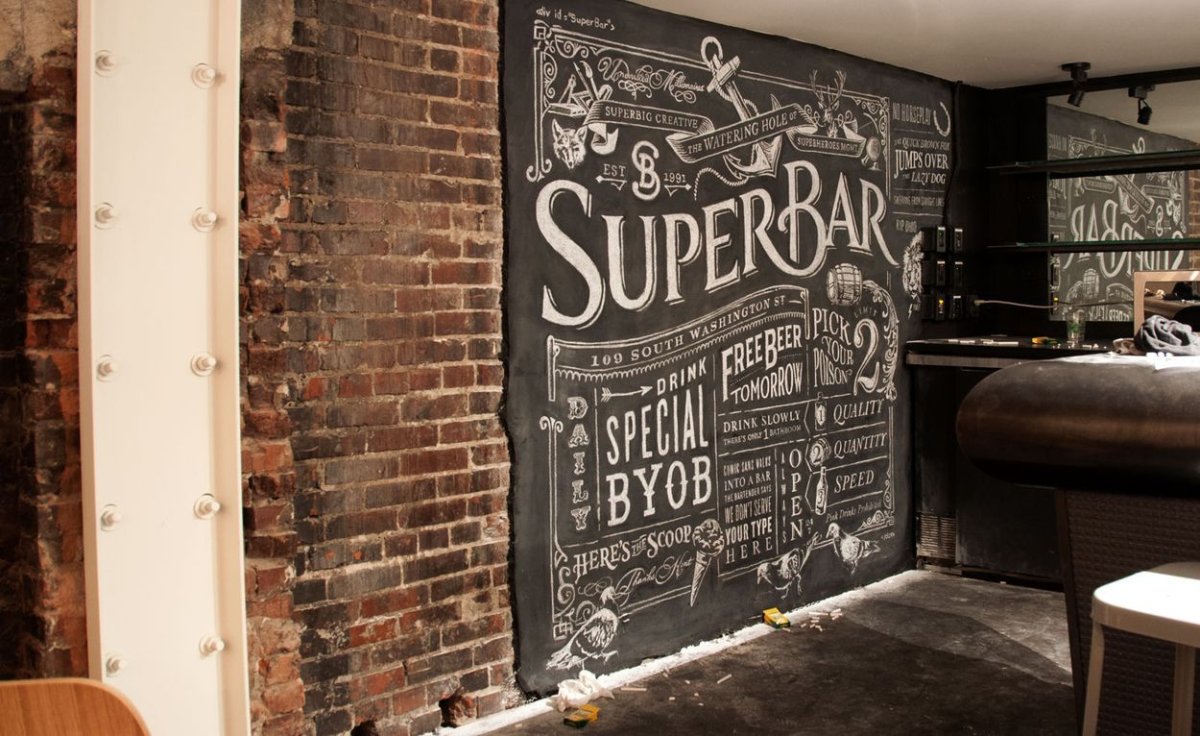 div id="SuperBar">
SUPERBIG CREATIVE
THE WATERING HOLE OF
SUPERHEROES MGMT.
EST 1991
SB
SUPERBAR
109 SOUTH WASHINGTON ST
DAILY
DRINK
SPECIAL
BYOB
FREE BEER
TOMORROW
PICK
YOUR
POISON
LIMIT
2
DRINK SLOWLY
THERE'S ONLY 1 BATHROOM
COMIC SANS WALKS
INTO A BAR
THE BARTENDER SAYS
WE DON'T SERVE
YOUR TYPE
HERE
OPEN
QUALITY
QUANTITY
SPEED
Pink Drinks Prohibited
HERE'S THE SCOOP
NO HORSEPLAY
THE QUICK BROWN FOX
JUMPS OVER
THE LAZY DOG